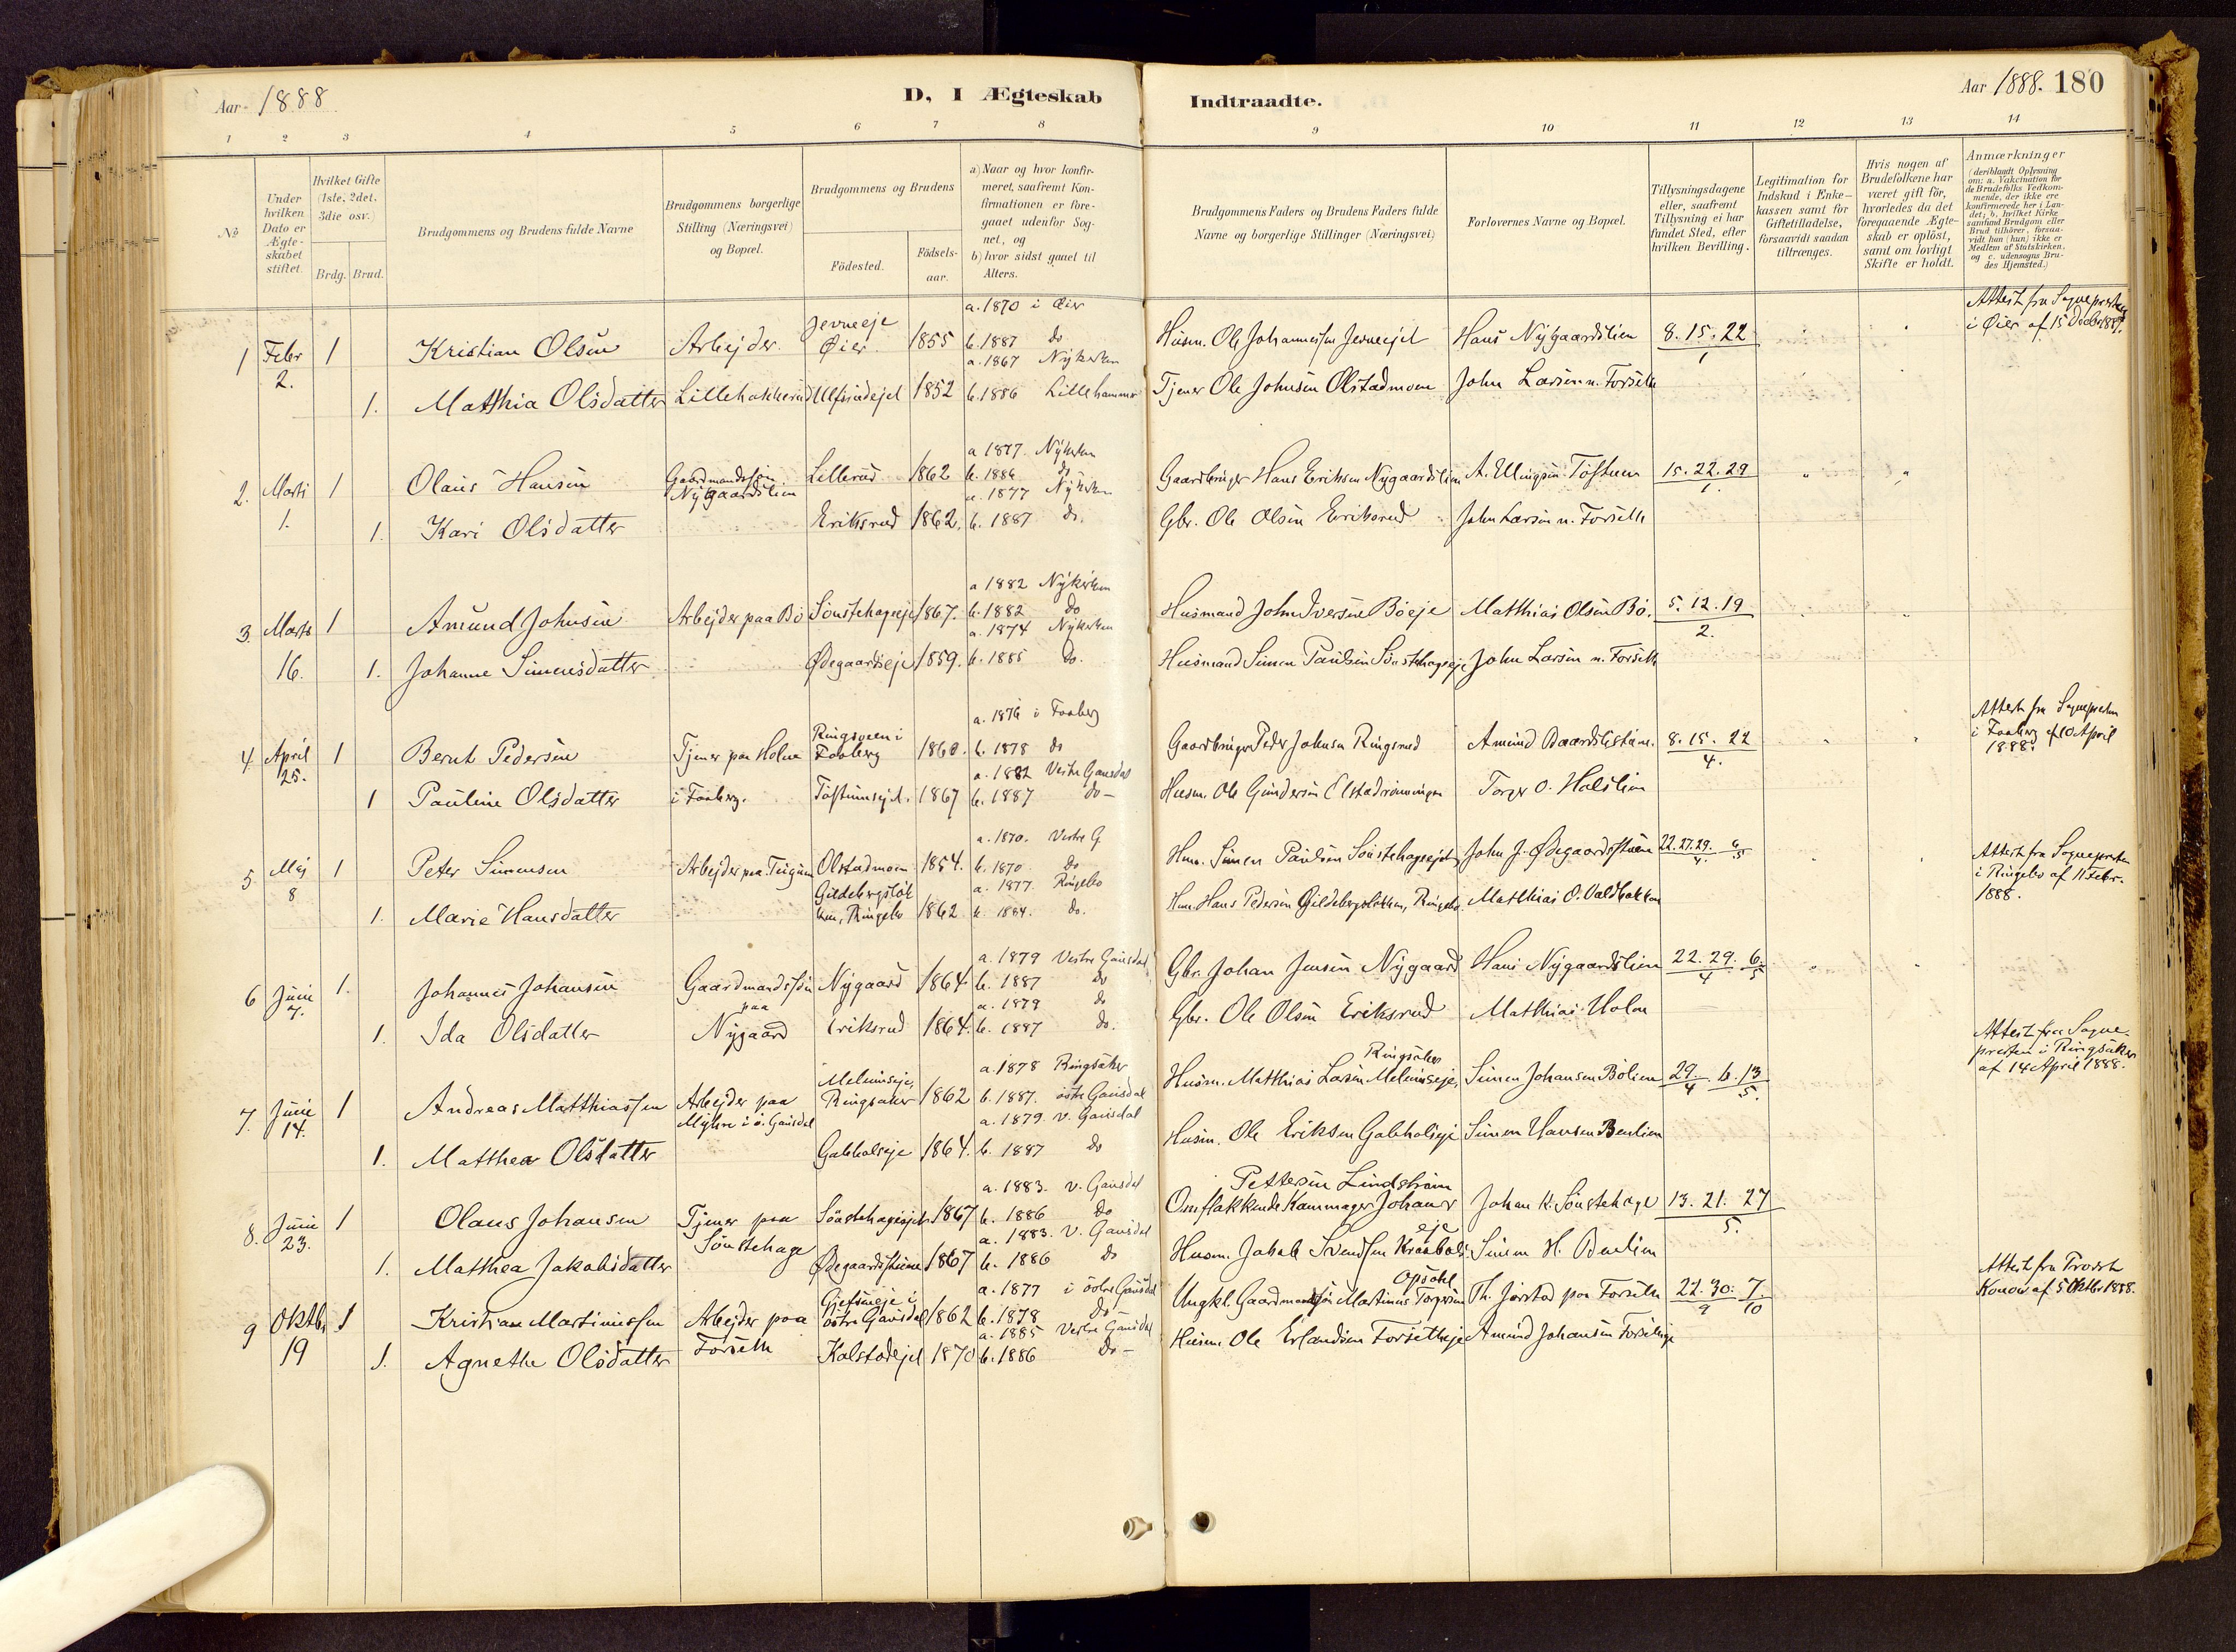 Aar 1888
D, I Ægteskab
Indtraadte.
Aar 1888. 180
1 2 3 4 5 6 7 8 9 10 11 12 13 14
No
Under hvilken Dato er Ægteskabet stiftet.
Hvilket Gifte (1ste, 2det, 3die osv.)
Brdg. Brud.
Brudgommens og Brudens fulde Navne
Brudgommens borgerlige Stilling (Næringsvei) og Bopæl.
Brudgommens og Brudens
Födested.
Födselsaar.
a) Naar og hvor konfirmeret, saafremt Konfirmationen er foregaaet udenfor Sognet, og
b) hvor sidst gaaet til Alters.
Brudgommens Faders og Brudens Faders fulde Navne og borgerlige Stillinger (Næringsvei)
Forlovernes Navne og Bopæl.
Tillysningsdagene eller, saafremt Tillysning ei har fundet Sted, efter hvilken Bevilling.
Legitimation for Indskud i Enkekassen samt for Giftetilladelse, forsaavidt saadan tiltrænges.
Hvis nogen af Brudefolkene har været gift för, hvorledes da det foregaaende Ægteskab er oplöst, samt om lovligt Skifte er holdt.
Anmærkninger (deriblandt Oplysning om: a. Vakcination for de Brudefolks Vedkommende, der ikke ere konfirmerede her i Landet; b. hvilket Kirkesamfund Brudgom eller Brud tilhörer, forsaavidt han (hun) ikke er Medlem af Statskirken, og c. udensogns Brudes Hjemsted.)
a. 1870 i Øier
1 Febr 2. 1 Kristian Olsen Arbejder Jevneeje Øier 1855 b. 1887 do Husm. Ole Johannessen Jevneejet Hans Nygaardslien 8. 15. 22 1
Attest fra Sognepresten i Øier af 15 Decbr 1887.
a. 1867 Nykirken
1. Matthia Olsdatter Lillehakkerud Ulfsrudejet 1852 b. 1886 Lillehammer Tjener Ole Johnsen Olstadmoen John Larsen n. Forseth
a 1877 Nykirken
2. Marts 1. 1 Olaus Hansen Gaardmandssøn Nygaardslien Lillerud 1862 b. 1886 do Gaardbruger Hans Eriksen Nygaardslien A. Ulingsen Toftuen 15. 22. 29 1.
a. 1877 Nykirken
1. Kari Olsdatter Eriksrud 1862. b. 1887 do. Gbr. Ole Olsen Eriksrud John Larsen n. Forseth
a 1882 Nykirken
3. Marts 16. 1 Amund Johnsen Arbejder paa Bö Sönstehageeje 1867. b. 1882 do Husmand John Iversen Böeje Matthias Olsen Bö. 5. 12. 19 2.
a. 1874 Nykirken
1. Johanne Simensdatter Ødegaardseje 1859. b. 1885 do. Husmand Simen Paulsen Sönstehageeje John Larsen n. Forseth
a. 1876 i Faaberg
4. April 25. 1 Bernt Pedersen Tjener paa Holen i Faaberg. Ringsveen i Faaberg 1860. b. 1878 do Gaardbruger Peder Johnsen Ringsrud Amund Baardslistuen. 8. 15. 22 4.
Attest fra Sognepresten i Faaberg af 10 April 1888.
a. 1882 Vestre Gausdal
1 Pauline Olsdatter Toftumsejet. 1867 b. 1887 do Husm. Ole Gundersen Olstadrönningen Torger O. Holslien
a. 1870. Vestre G
5. Maj 8 1 Peter Simensen Arbejder paa Olstadmoen 1854. b. 1870 do Hum. Simen Paulsen Sönstehageejet John J. Ødegaardsstuen 22. 27. 29. 4. 6 5
Attest fra Sognepresten i Ringebo af 11 Febr. 1888.
a. 1877 Ringebo
1. Marie Hansdatter Gildebergslökken, Ringebo 1862. b. 1884. do. Hum. Hans Pedersen Gildebergslökken, Ringebo. Matthias O. Valdbakken
a. 1879 Vestre Gausdal
6 Juni 7. 1. Johannes Johansen Gaardmandssøn paa Nygaard Nygaard 1864 b. 1887 do Gbr. Johan Jensen Nygaard Hans Nygaardslien 22. 29. 4 6. 5
a. 1879 do
1. Ida Olsdatter Eriksrud 1864. b. 1887 do. Gbr. Ole Olsen Eriksrud Matthias Holen
a. 1878 Ringsaker
7. Juni 14. 1 Andreas Matthiassen Arbejder paa Myhre i ö. Gausdal Melumseje, Ringsaker 1862 b. 1887. östre Gausdal Husm. Matthias Larsen Melumseje, Ringsaker Simen Johansen Bölien 29. 4 6. 13 5.
Attest fra Sognepresten i Ringsaker af 14 April 1888.
a. 1879 v. Gausdal
1. Matthea Olsdatter Galsholseje 1864. b. 1887 do Husm. Ole Eriksen Galsholseje Simen Hansen Benlien
a. 1883. v. Gausdal
8. Juni 23. 1 Olaus Johansen Tjener paa Sönstehage Sönstehageejet 1867 b. 1886 do Omflakkende Kammager Johan Pettersen Lindström Johan K. Sönstehage 13. 21. 27 5.
a. 1883. v. Gausdal
1. Matthea Jakobsdatter Ødegaardsstuen 1867 b. 1886 do Husm. Jakob Svendsen Kraaböls eje Simen H. Benlien
a. 1877 i östre Gausdal
9 Oktbr 19 1 Kristian Martinussen Arbejder paa Forseth Gjefsneje i östre Gausdal 1862 b. 1878 do Ungkl. Gaardmandssön Martinus Torgersen Opsahl Th. Jörstad paa Forseth 22. 30. 9 7. 10
Attest fra Provst Konow af 5 Oktbr 1888.
a. 1885 Vestre Gausdal
1. Agnethe Olsdatter Kalstadejet 1870 b. 1886 do Husm. Ole Erlandsen Forsetheje Amund Johansen Forsetheje